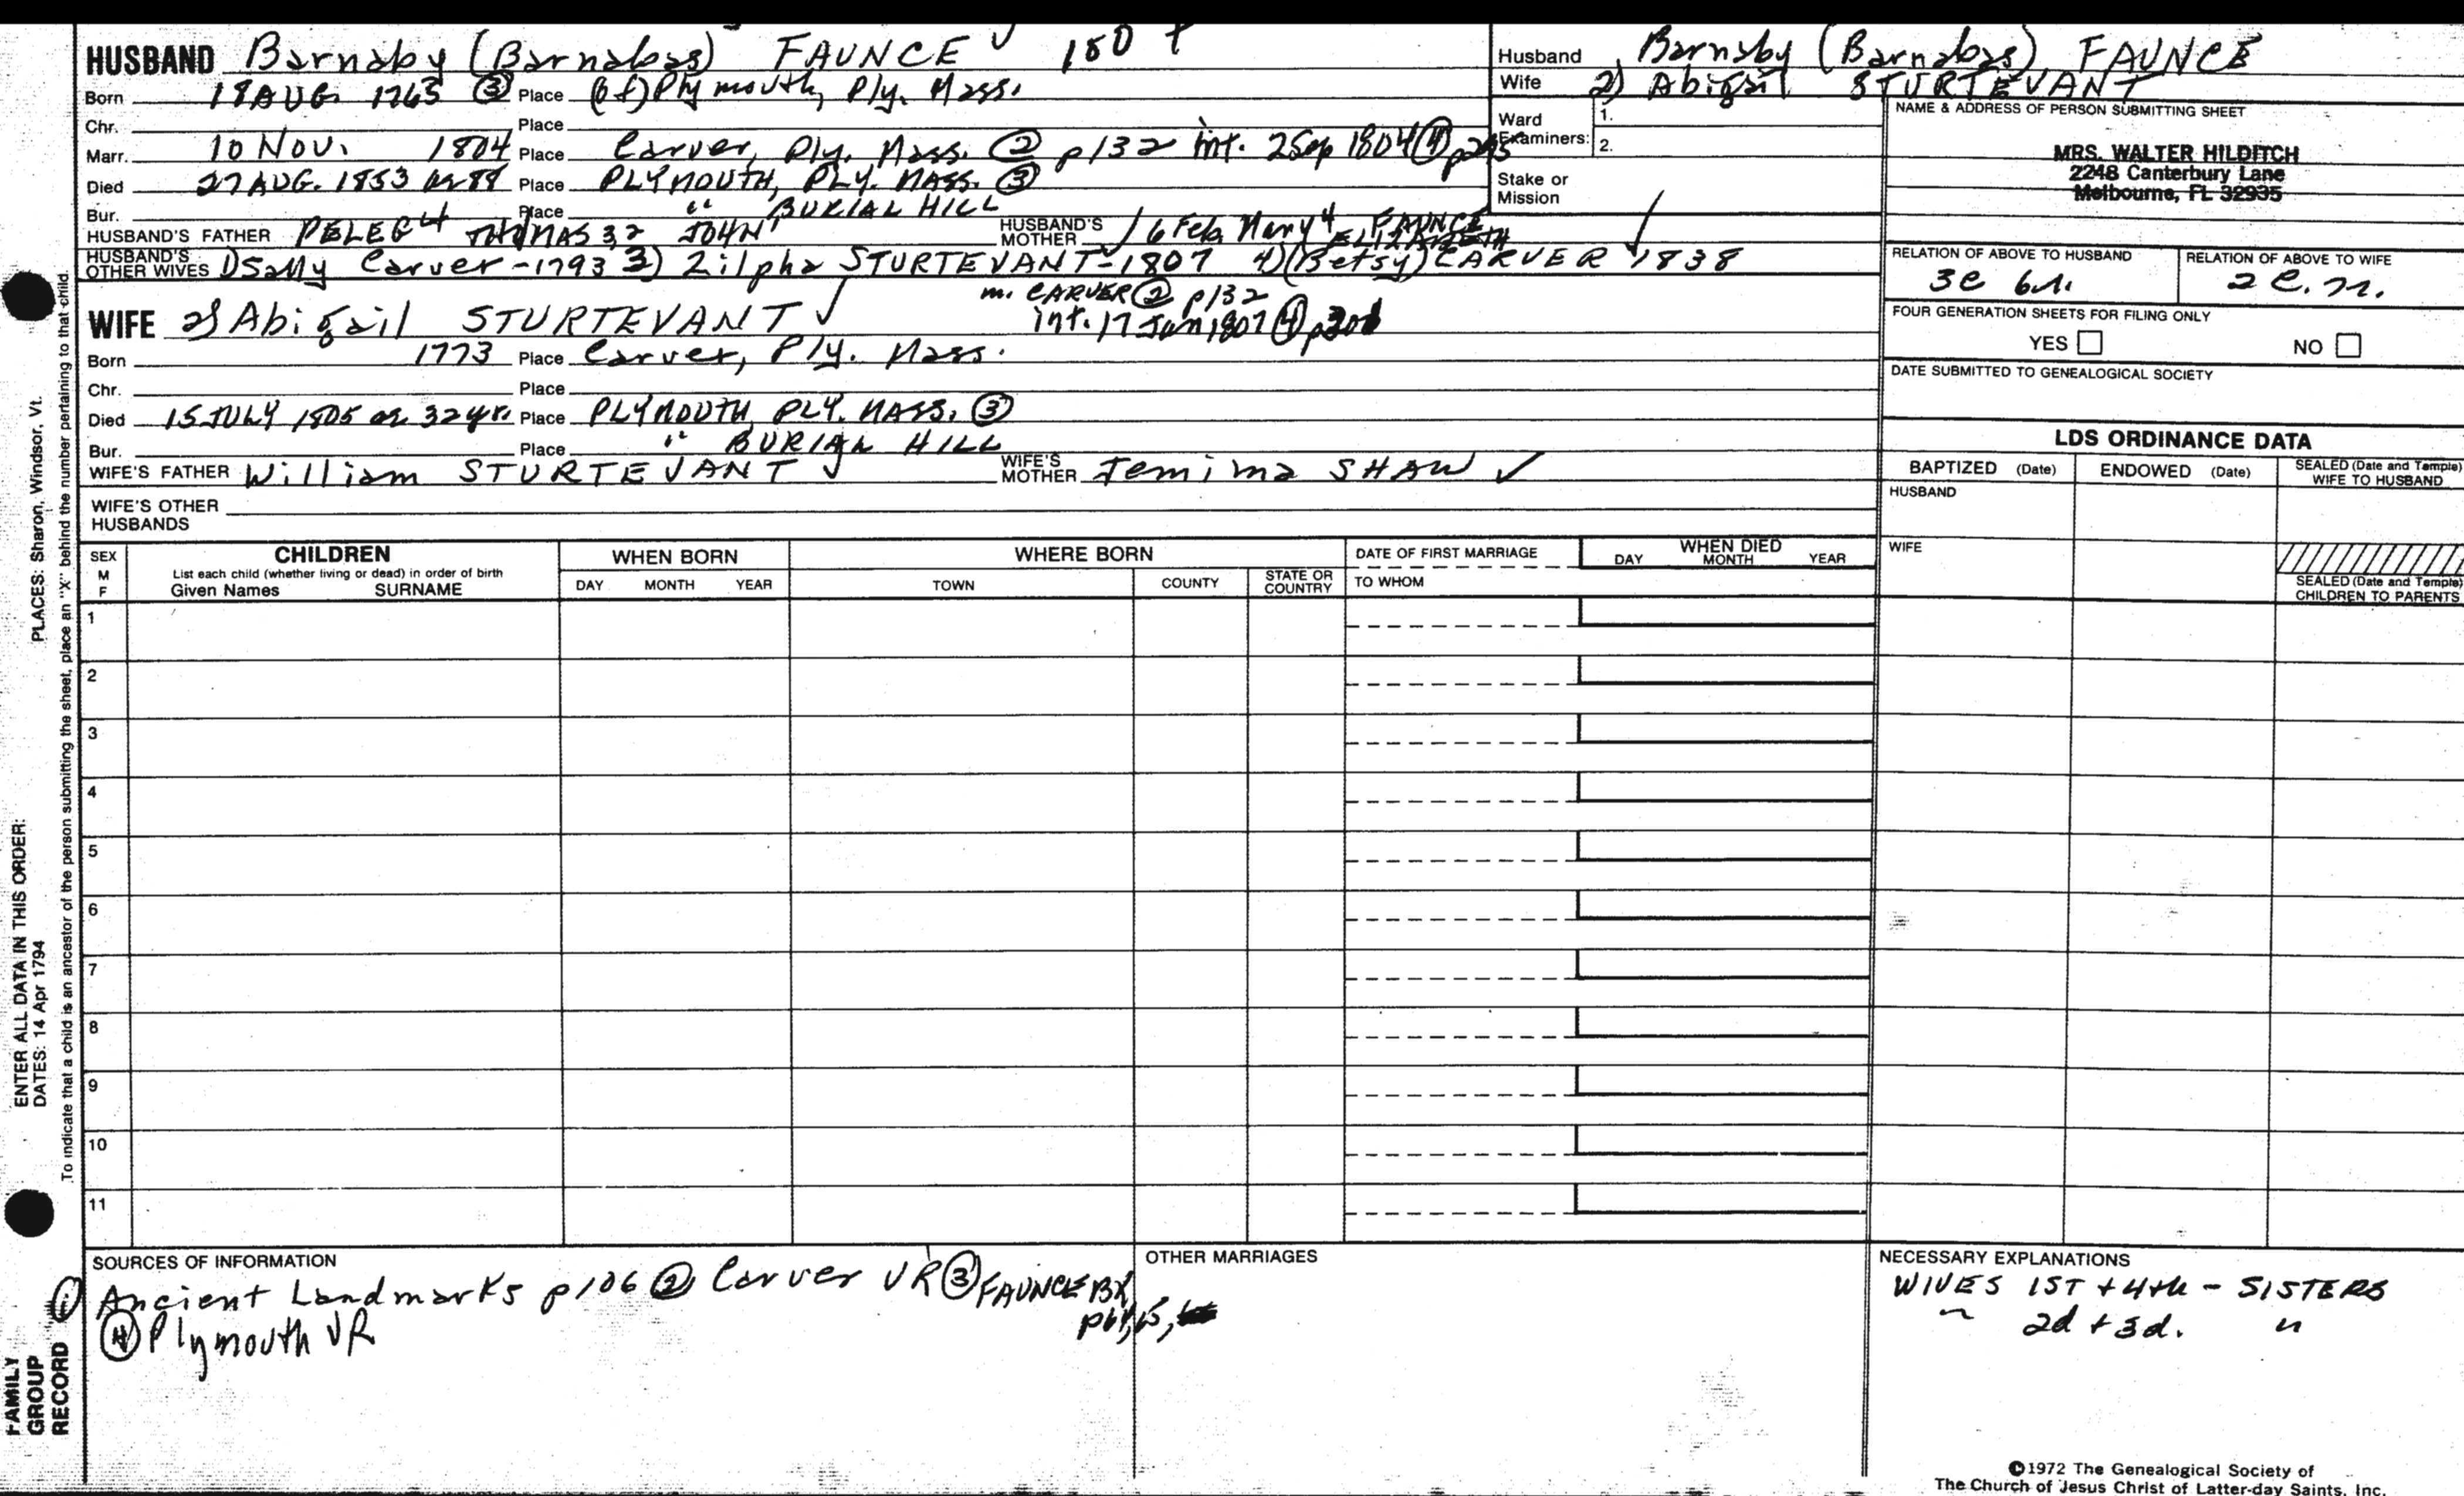 HUSBAND Barnaby (Barnabas) FAUNCE
Born 18 AUG 1765 ③ Place (of) Plymouth, Ply. Mass.
Chr. Place
Marr. 10 Nov. 1804 Place Carver, Ply. Mass. ② p132 int. 2 Sep 1804 ④
Died 27 AUG. 1853 Place PLYMOUTH, PLY. MASS. ③
Bur. Place " BURIAL HILL
HUSBAND'S FATHER PELEG4 THOMAS 3,2 JOHN1 HUSBAND'S MOTHER Mary4 FAUNCE
HUSBAND'S OTHER WIVES 1) Sally Carver - 1793 3) Zilpha STURTEVANT - 1807 4) (Betsy) ELIZABETH CARVER 1838
m. CARVER ② p132
int. 17 Jan 1807 ④
WIFE 2) Abigail STURTEVANT
Born 1773 Place Carver, Ply. Mass.
Chr. Place
Died 15 JULY 1805 ae 32 yr. Place PLYMOUTH PLY. MASS. ③
Bur. Place " BURIAL HILL
WIFE'S FATHER William STURTEVANT WIFE'S MOTHER Jemima SHAW
WIFE'S OTHER HUSBANDS
Husband Barnaby (Barnabas) FAUNCE
Wife 2) Abigail STURTEVANT
Ward Examiners: 1.
2.
Stake or Mission
NAME & ADDRESS OF PERSON SUBMITTING SHEET
MRS. WALTER HILDITCH
2248 Canterbury Lane
Melbourne, FL 32935
RELATION OF ABOVE TO HUSBAND RELATION OF ABOVE TO WIFE
FOUR GENERATION SHEETS FOR FILING ONLY
YES NO
DATE SUBMITTED TO GENEALOGICAL SOCIETY
LDS ORDINANCE DATA
BAPTIZED (Date) ENDOWED (Date) SEALED (Date and Temple) WIFE TO HUSBAND
HUSBAND
WIFE
SEALED (Date and Temple) CHILDREN TO PARENTS
SEX M F
CHILDREN
List each child (whether living or dead) in order of birth
Given Names SURNAME
WHEN BORN
DAY MONTH YEAR
WHERE BORN
TOWN COUNTY STATE OR COUNTRY
DATE OF FIRST MARRIAGE
TO WHOM
WHEN DIED
DAY MONTH YEAR
1
2
3
4
5
6
7
8
9
10
11
SOURCES OF INFORMATION
① Ancient Landmarks p106 ② Carver VR ③ FAUNCE
④ Plymouth VR
OTHER MARRIAGES
NECESSARY EXPLANATIONS
WIVES 1ST + 4th - SISTERS
" 2d + 3d. "
©1972 The Genealogical Society of
The Church of Jesus Christ of Latter-day Saints, Inc.
PLACES: Sharon, Windsor, Vt.
To indicate that a child is an ancestor of the person submitting the sheet, place an "X" behind the number pertaining to that child.
ENTER ALL DATA IN THIS ORDER:
DATES: 14 Apr 1794
FAMILY
GROUP
RECORD